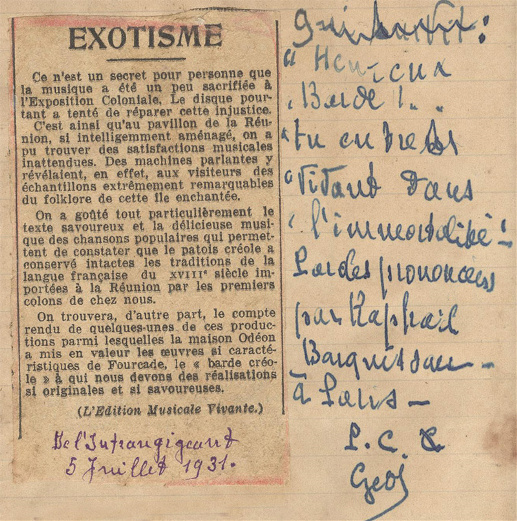 EXOTISME
Ce n'est un secret pour personne que
la musique a été un peu sacrifiée à
l'Exposition Coloniale. Le disque pour-
tant a tenté de réparer cette injustice.
C'est ainsi qu'au pavillon de la Réu-
nion, si intelligemment aménagé, on a
pu trouver des satisfactions musicales
inattendues. Des machines parlantes y
révélaient, en effet, aux visiteurs des
échantillons extrêmement remarquables
du folklore de cette île enchantée.
On a goûté tout particulièrement le
texte savoureux et la délicieuse musi-
que des chansons populaires qui permet-
tent de constater que le patois créole a
conservé intactes les traditions de la
langue française du XVIIIe siècle im-
portées à la Réunion par les premiers
colons de chez nous.
On trouvera, d'autre part, le compte
rendu de quelques-unes de ces produc-
tions parmi lesquelles la maison Odéon
a mis en valeur les œuvres si caracté-
ristiques de Fourcade, le « barde créo-
le » à qui nous devons des réalisations
si originales et si savoureuses.
(L'Edition Musicale Vivante.)
De l'Intrangigeant
5 Juillet 1931.
" Heureux
" Barde !..
" tu entres
" Vivant dans
" l'immortalité !
Paroles prononcées
par Raphaël
Barquissau -
à Paris -